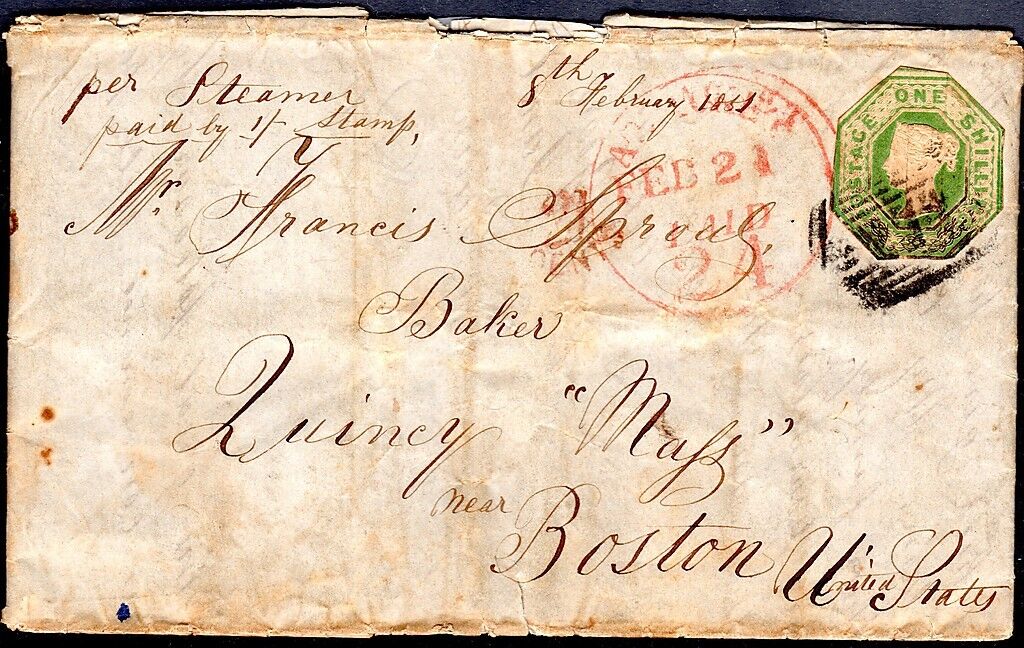 per Steamer
paid by 1/- Stamp,
8th February 1851
POSTAGE ONE SHILLING
FEB 21
PAID
24
Mr. Francis Sproul,
Baker
Quincy "Mass"
near
Boston United States